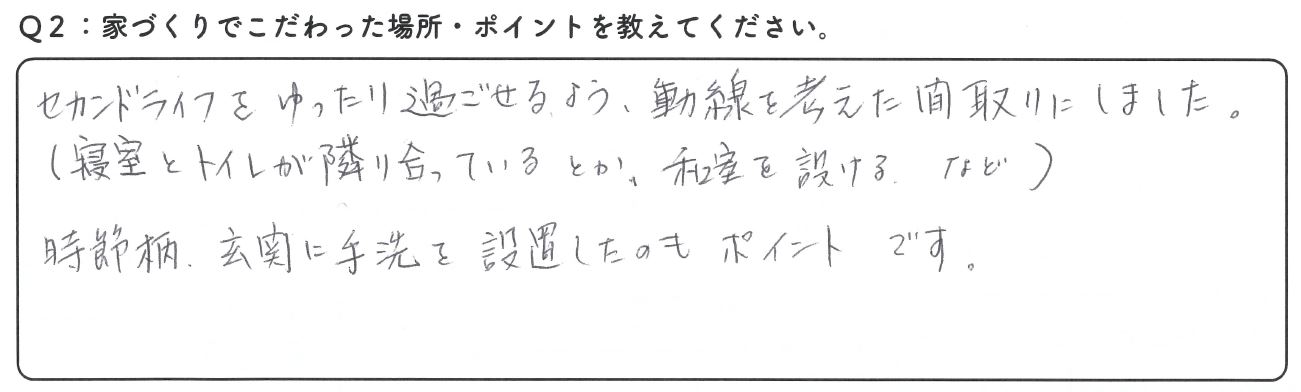 Q2：家づくりでこだわった場所・ポイントを教えてください。
セカンドライフを ゆったり過ごせるよう、動線を考えた間取りにしました。
（寝室とトイレが隣り合っているとか、和室を設ける など）
時節柄、玄関に手洗を設置したのもポイントです。